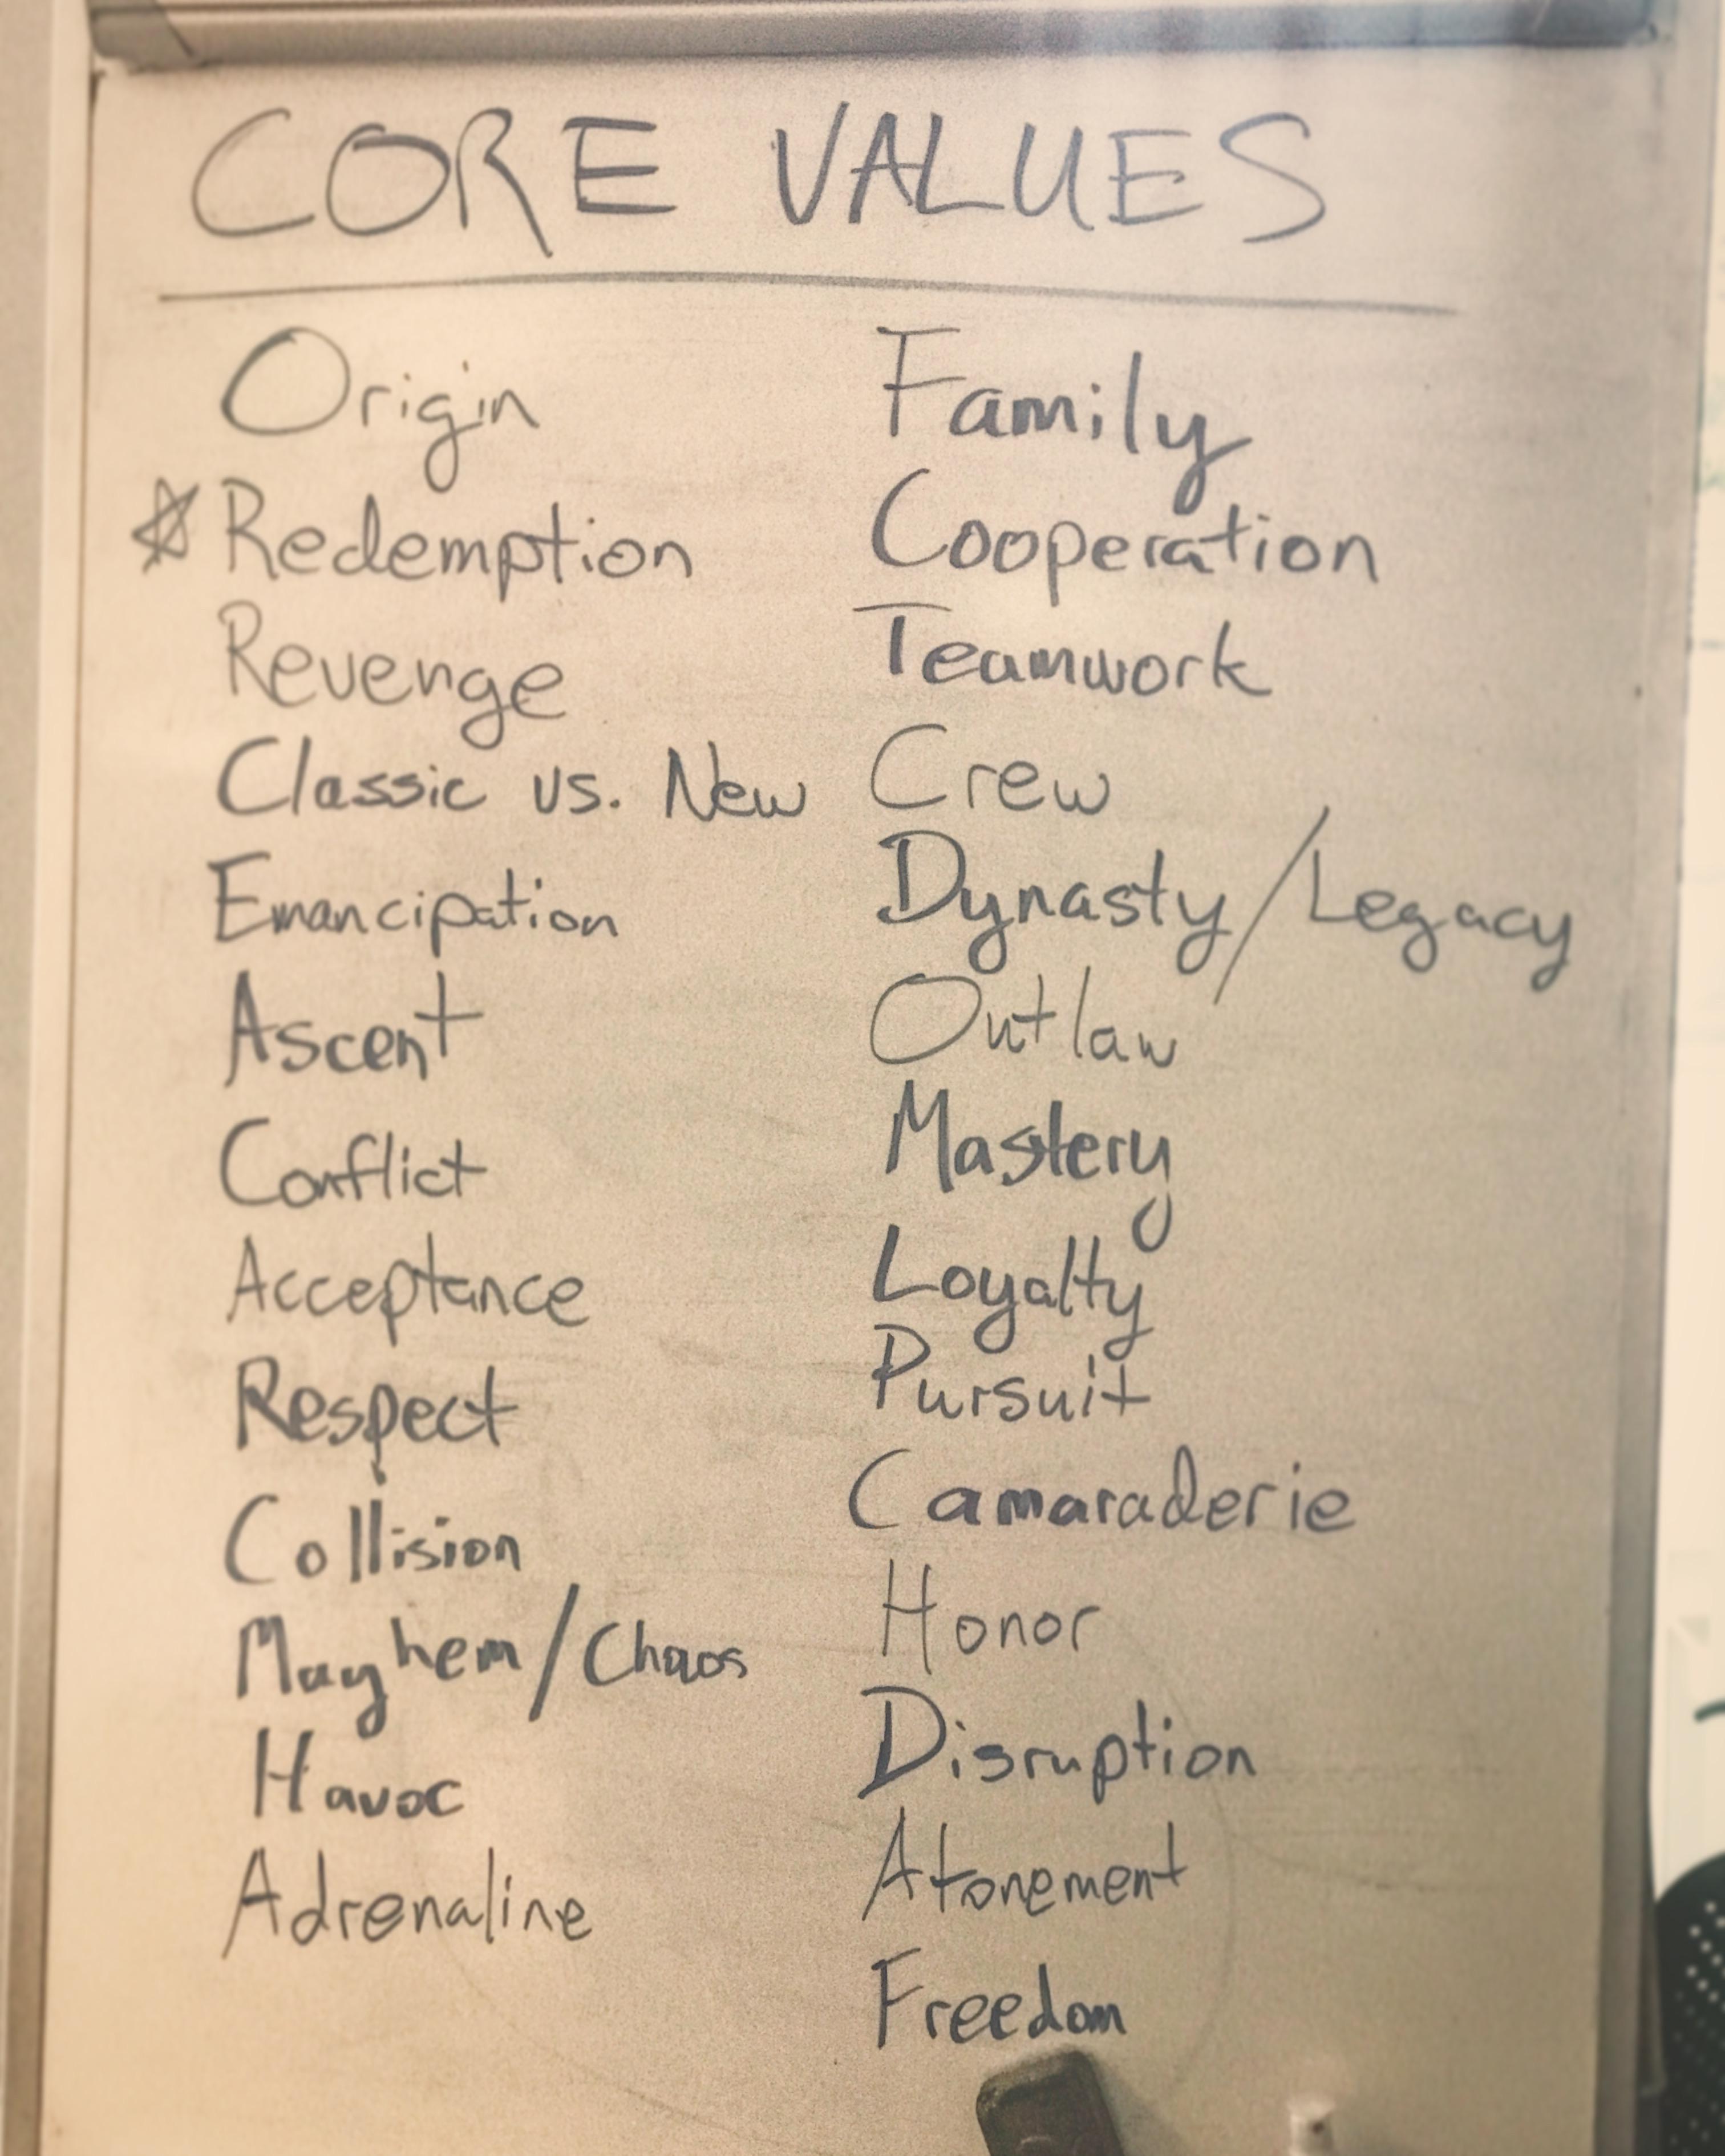 CORE VALUES
Origin
☆ Redemption
Revenge
Classic vs. New
Emancipation
Ascent
Conflict
Acceptance
Respect
Collision
Mayhem/Chaos
Havoc
Adrenaline
Family
Cooperation
Teamwork
Crew
Dynasty/Legacy
Outlaw
Mastery
Loyalty
Pursuit
Camaraderie
Honor
Disruption
Atonement
Freedom